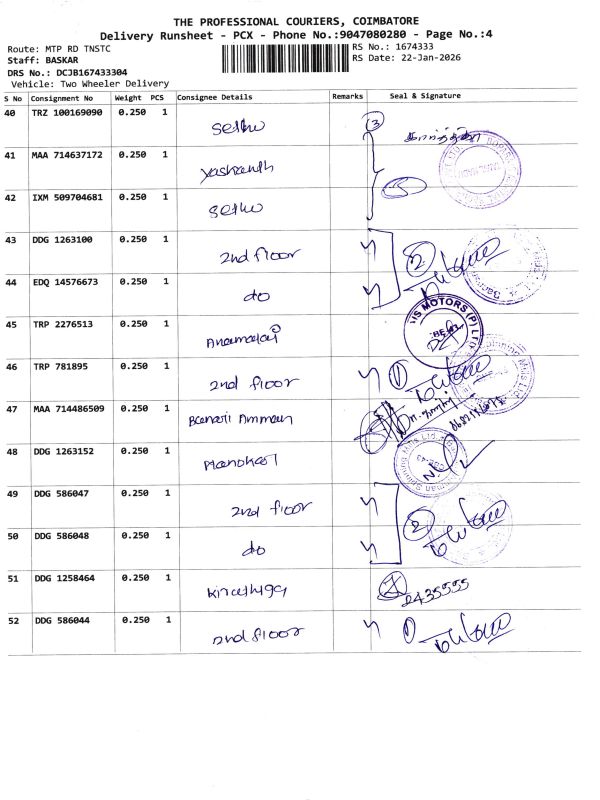 THE PROFESSIONAL COURIERS, COIMBATORE
Delivery Runsheet - PCX - Phone No.:9047080280 - Page No.:4
Route: MTP RD TNSTC
Staff: BASKAR
DRS No.: DCJB167433304
Vehicle: Two Wheeler Delivery
RS No.: 1674333
RS Date: 22-Jan-2026
S No Consignment No Weight PCS Consignee Details Remarks Seal & Signature
40 TRZ 100169090 0.250 1 Sethu 3
41 MAA 714637172 0.250 1 Yashwanth
42 IXM 509704681 0.250 1 Sethu
43 DDG 1263100 0.250 1 2nd floor 2
44 EDQ 14576673 0.250 1 do
45 TRP 2276513 0.250 1 Anamalai MOTORS (P) LTD
46 TRP 781895 0.250 1 2nd floor 1
47 MAA 714486509 0.250 1 Ammam
48 DDG 1263152 0.250 1
49 DDG 586047 0.250 1 2nd floor 2
50 DDG 586048 0.250 1 do
51 DDG 1258464 0.250 1 2435555
52 DDG 586044 0.250 1 2nd floor 1